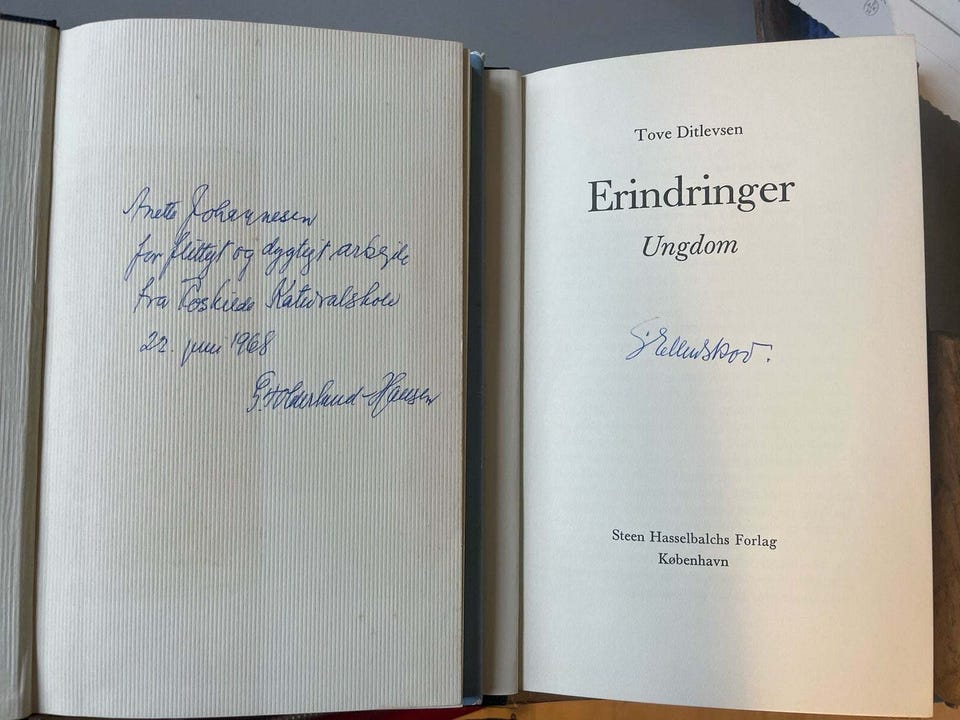 Anette Johannesen
for flittigt og dygtigt arbejde
fra Roskilde Katedralskole
22. juni 1968
G. Holderlund-Hansen
Tove Ditlevsen
Erindringer
Ungdom
Steen Hasselbalchs Forlag
København